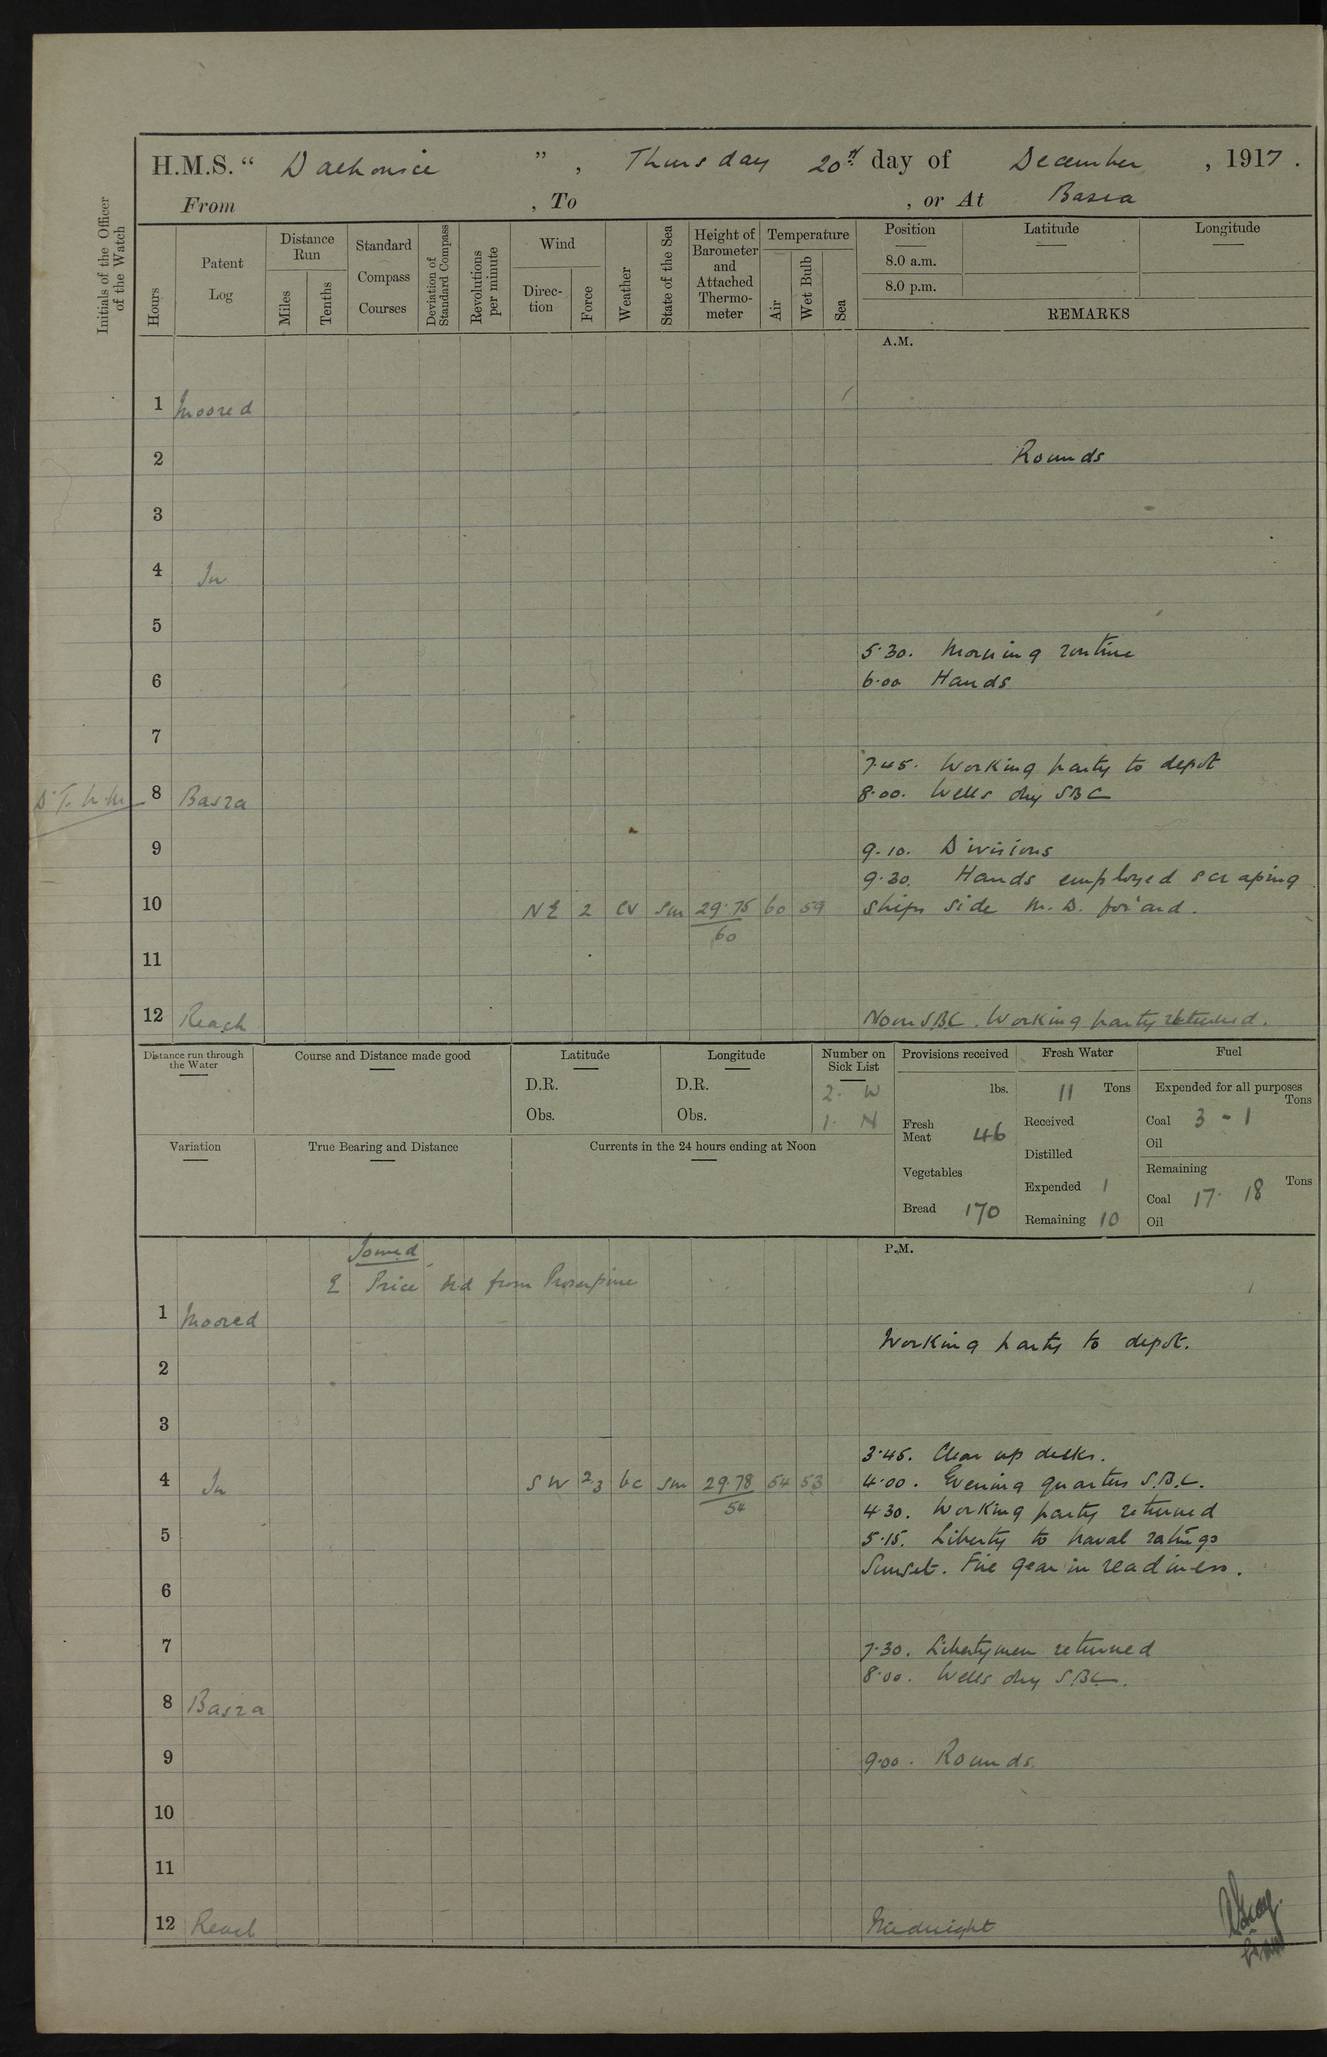 H.M.S. “ Dalhousie ”, Thursday 20th day of December, 1917.
From , To , or At Basra
Initials of the Officer of the Watch
Hours
Patent Log
Distance Run
Miles
Tenths
Standard Compass Courses
Deviation of Standard Compass
Revolutions per minute
Wind
Direction
Force
Weather
State of the Sea
Height of Barometer and Attached Thermometer
Temperature
Air
Wet Bulb
Sea
Position
Latitude
Longitude
8.0 a.m.
8.0 p.m.
REMARKS
A.M.
1 Moored
2 Rounds
3
4 In
5
5.30. Morning routine
6 6.00 Hands
7
7.45. Working party to depot
8 Basra 8.00. Wells dry SBC
9 9.10. Divisions
9.30. Hands employed scraping
10 NE 2 cv sm 29.75 60 59 Ships side M.D. for'ard.
60
11
12 Reach Noon SBC. Working party returned.
Distance run through the Water
Course and Distance made good
Latitude
D.R.
Obs.
Longitude
D.R.
Obs.
Number on Sick List
2. W
1. N
Provisions received
lbs.
Fresh Meat 46
Vegetables
Bread 170
Fresh Water
11 Tons
Received
Distilled
Expended 1
Remaining 10
Fuel
Expended for all purposes
Tons
Coal 3 - 1
Oil
Remaining
Tons
Coal 17. 18
Oil
Variation
True Bearing and Distance
Currents in the 24 hours ending at Noon
P.M.
Joined
E Price from Proserpine
1 Moored
Working party to depot.
2
3
3.45. Clear up decks.
4 In SW 2.3 bc sm 29.78 54 53 4.00. Evening quarters S.B.C.
54
4.30. Working party returned
5 5.15. Liberty to naval ratings
Sunset. Fire gear in readiness.
6
7 7.30. Libertymen returned
8.00. Wells dry SBC.
8 Basra
9 9.00. Rounds.
10
11
12 Reach Midnight